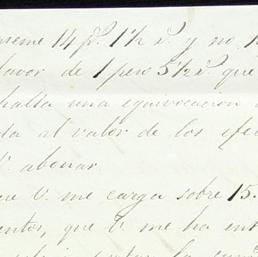 14 p.s 1½ r.s y no 1
favor de 1 peso 5½ r.s que
halla una equivocacion
da al valor de los efec
V. abonar.
ue V. me carga sobre 15.
entos, que V. me ha ent